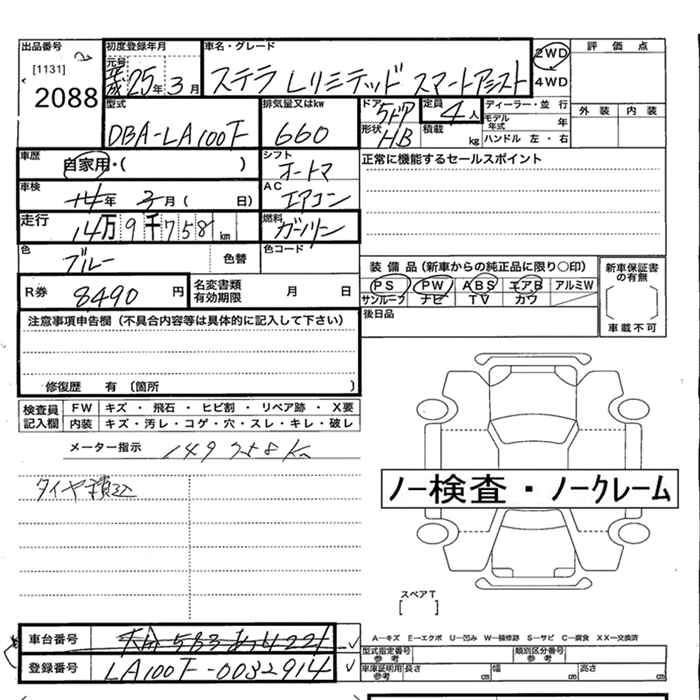 出品番号
[1131]
2088
初度登録年月
元号
平成 25年 3月
車名・グレード
ステラ Lリミテッド スマートアシスト
2WD
4WD
評価点
外装 内装
型式
DBA-LA100F
排気量又はkw
660
ドア
5ドア
形状
HB
定員
4人
積載 kg
ディーラー・並行
モデル年式 年
ハンドル 左・右
車歴
自家用・( )
シフト
オートマ
正常に機能するセールスポイント
車検
年 3月( 日)
AC
エアコン
走行
14万9千758km
燃料
ガソリン
色
ブルー
色替
色コード
R券
8490円
名変書類有効期限 月 日
装備品(新車からの純正品に限り○印)
PS PW ABS エアB アルミW
サンルーフ ナビ TV カワ
後日品
新車保証書の有無
車載不可
注意事項申告欄(不具合内容等は具体的に記入して下さい)
修復歴 有〔箇所 〕
検査員記入欄
FW キズ・飛石・ヒビ割・リペア跡・X要
内装 キズ・汚レ・コゲ・穴・スレ・キレ・破レ
メーター指示 149758km
タイヤ積込
ノー検査・ノークレーム
スペアT
[ ]
車台番号
583 422
登録番号
LA100F-0032914
A-キズ E-エクボ U-凹み W-補修跡 S-サビ C-腐食 XX-交換済
型式指定番号 参考
類別区分番号 参考
車庫証明用 参考 長さ cm 幅 cm 高さ cm